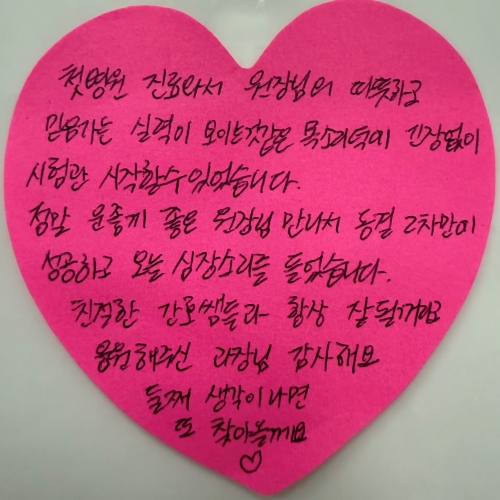 첫병원 진료와서 원장님의 따뜻하고
믿음가는 실력이 보이는것같은 목소리덕에 긴장없이
시험관 시작할수있었습니다.
정말 운좋게 좋은 원장님 만나서 동결 2차만에
성공하고 오늘 심장소리를 들었습니다.
친절한 간호쌤들과 항상 잘될꺼에요
응원해주신 과장님 감사해요
둘째 생각이나면
또 찾아올께요
♡